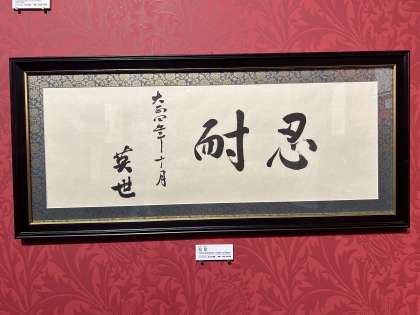 忍耐
大正四年十月
英世
忍耐